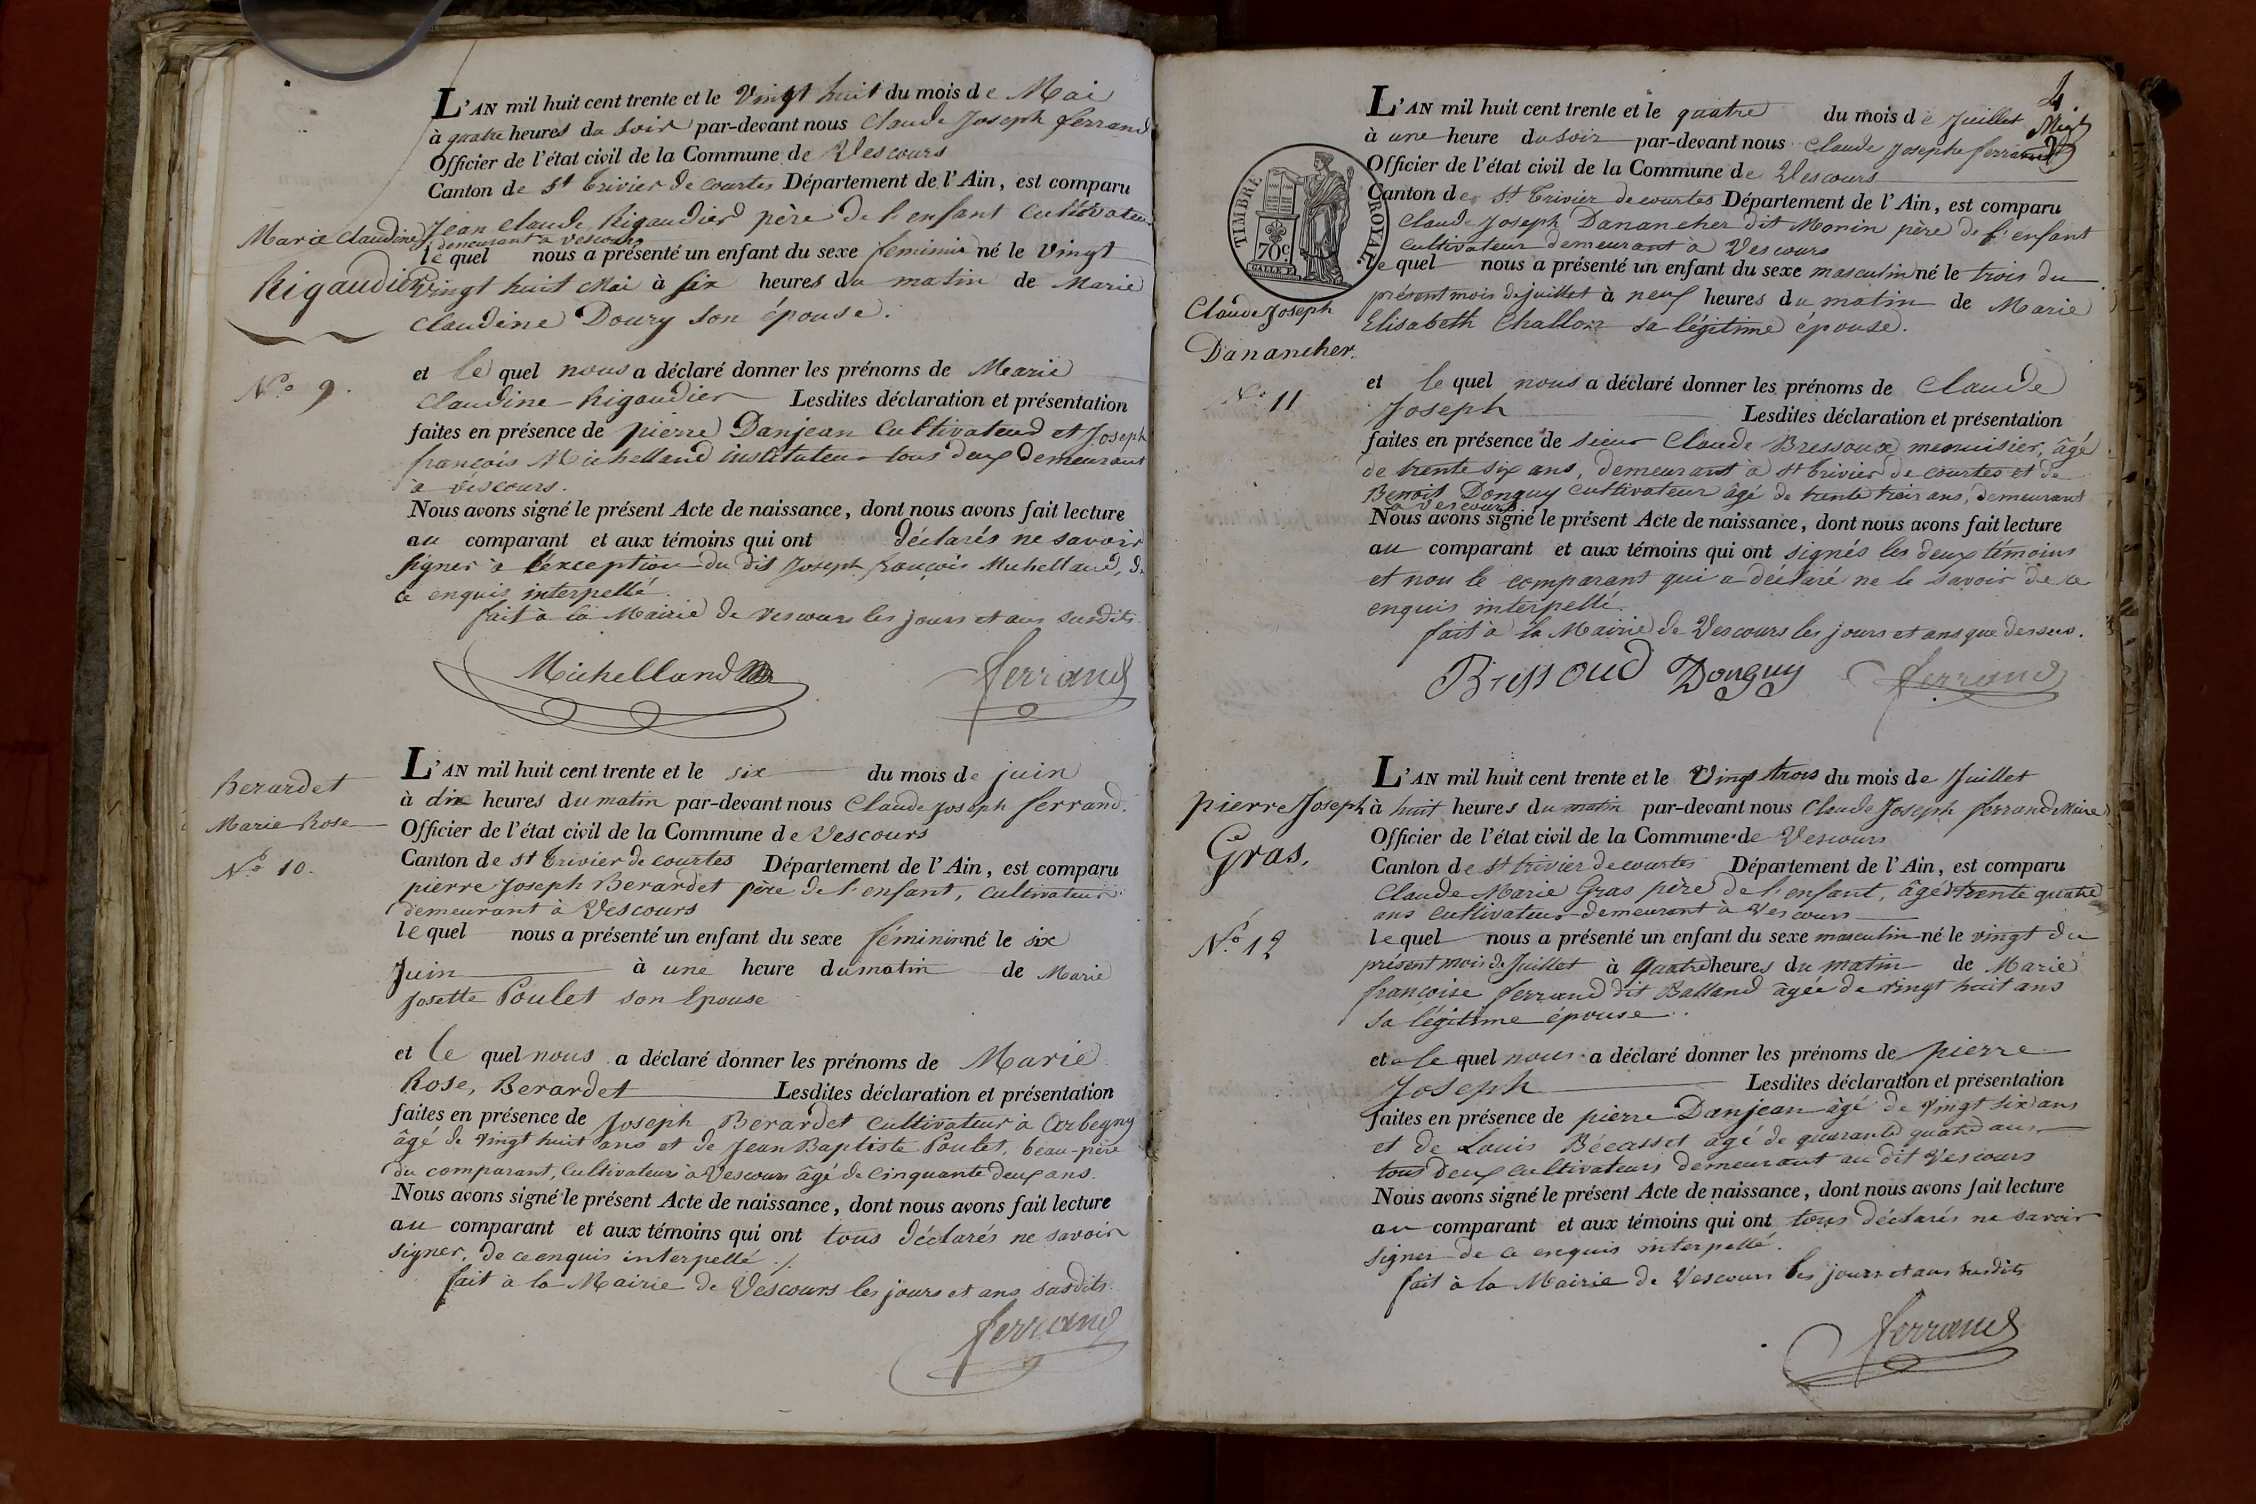 L'AN mil huit cent trente et le Vingt huit du mois de Mai
à quatre heures du soir par-devant nous Claude Joseph ferrand
Officier de l'état civil de la Commune de Vescours
Canton de St trivier de courtes Département de l'Ain, est comparu
Jean Claude Rigaudier père de l'enfant Cultivateur
demeurant à Vescours
le quel nous a présenté un enfant du sexe feminin né le Vingt
Vingt huit Mai à six heures du matin de Marie
Claudine Doury son épouse.
et le quel nous a déclaré donner les prénoms de Marie
Claudine Rigaudier Lesdites déclaration et présentation
faites en présence de pierre Danjean Cultivateur et Joseph
françois Michelland instituteur tous deux demeurant
à vescours.
Nous avons signé le présent Acte de naissance, dont nous avons fait lecture
au comparant et aux témoins qui ont déclarés ne savoir
signer à l'exception du dit Joseph françois Michelland, de
ce enquis interpellé.
fait à la Mairie de Vescours les jours et ans susdits.
Michelland ferrand
Marie Claudine
Rigaudier
N.o 9.
L'AN mil huit cent trente et le six du mois de juin
à dix heures du matin par-devant nous Claude Joseph ferrand.
Officier de l'état civil de la Commune de Vescours
Canton de st trivier de courtes Département de l'Ain, est comparu
pierre Joseph Berardet père de l'enfant, Cultivateur
demeurant à Vescours
le quel nous a présenté un enfant du sexe féminin né le six
Juin à une heure du matin de Marie
Josette Poulet son Epouse
et le quel nous a déclaré donner les prénoms de Marie
Rose, Berardet Lesdites déclaration et présentation
faites en présence de Joseph Berardet Cultivateur à Arbegny
âgé de vingt huit ans et de Jean Baptiste Poulet, beau-père
du comparant, Cultivateur à Vescours âgé de Cinquante deux ans.
Nous avons signé le présent Acte de naissance, dont nous avons fait lecture
au comparant et aux témoins qui ont tous déclarés ne savoir
signer, de ce enquis interpellé ./.
fait à la Mairie de Vescours les jours et ans susdits.
ferrand
Berardet
Marie Rose
N.o 10.
4
L'AN mil huit cent trente et le quatre du mois de Juillet
à une heure du soir par-devant nous Claude Josephe ferrand
Officier de l'état civil de la Commune de Vescours
Canton de St trivier de courtes Département de l'Ain, est comparu
Claude Joseph Danancher dit Monin père de l'enfant
Cultivateur demeurant à Vescours
le quel nous a présenté un enfant du sexe masculin né le trois du
présent mois de juillet à neuf heures du matin de Marie
Elisabeth Challon sa légitime épouse.
et le quel nous a déclaré donner les prénoms de Claude
Joseph Lesdites déclaration et présentation
faites en présence de sieur Claude Bressoux menuisier, âgé
de trente six ans, demeurant à st trivier de courtes et de
Benoit Donguy Cultivateur âgé de trente trois ans, demeurant
à Vescours
Nous avons signé le présent Acte de naissance, dont nous avons fait lecture
au comparant et aux témoins qui ont signés les deux témoins
et non le comparant qui a déclaré ne le savoir de ce
enquis interpellé.
fait à la Mairie de Vescours les jours et ans que dessus.
Bressoud Donguy ferrand
TIMBRE ROYAL.
70c.
Claude Joseph
Danancher.
N.o 11
L'AN mil huit cent trente et le Vingt trois du mois de Juillet
à huit heures du matin par-devant nous Claude Joseph ferrand Maire
Officier de l'état civil de la Commune de Vescours
Canton de st trivier de courtes Département de l'Ain, est comparu
Claude Marie Gras père de l'enfant, âgé trente quatre
ans Cultivateur demeurant à Vescours
le quel nous a présenté un enfant du sexe masculin né le vingt du
présent mois de Juillet à quatre heures du matin de Marie
françoise ferrand dit Balland âgée de vingt huit ans
sa légitime épouse.
et le quel nous a déclaré donner les prénoms de pierre
Joseph Lesdites déclaration et présentation
faites en présence de pierre Danjean âgé de vingt six ans
et de Louis Bécasset âgé de quarante quatre ans
tous deux cultivateurs demeurant au dit Vescours
Nous avons signé le présent Acte de naissance, dont nous avons fait lecture
au comparant et aux témoins qui ont tous déclarés ne savoir
signer de ce enquis interpellé.
fait à la Mairie de Vescours les jours et ans susdits
ferrand
pierre Joseph
Gras.
N.o 12